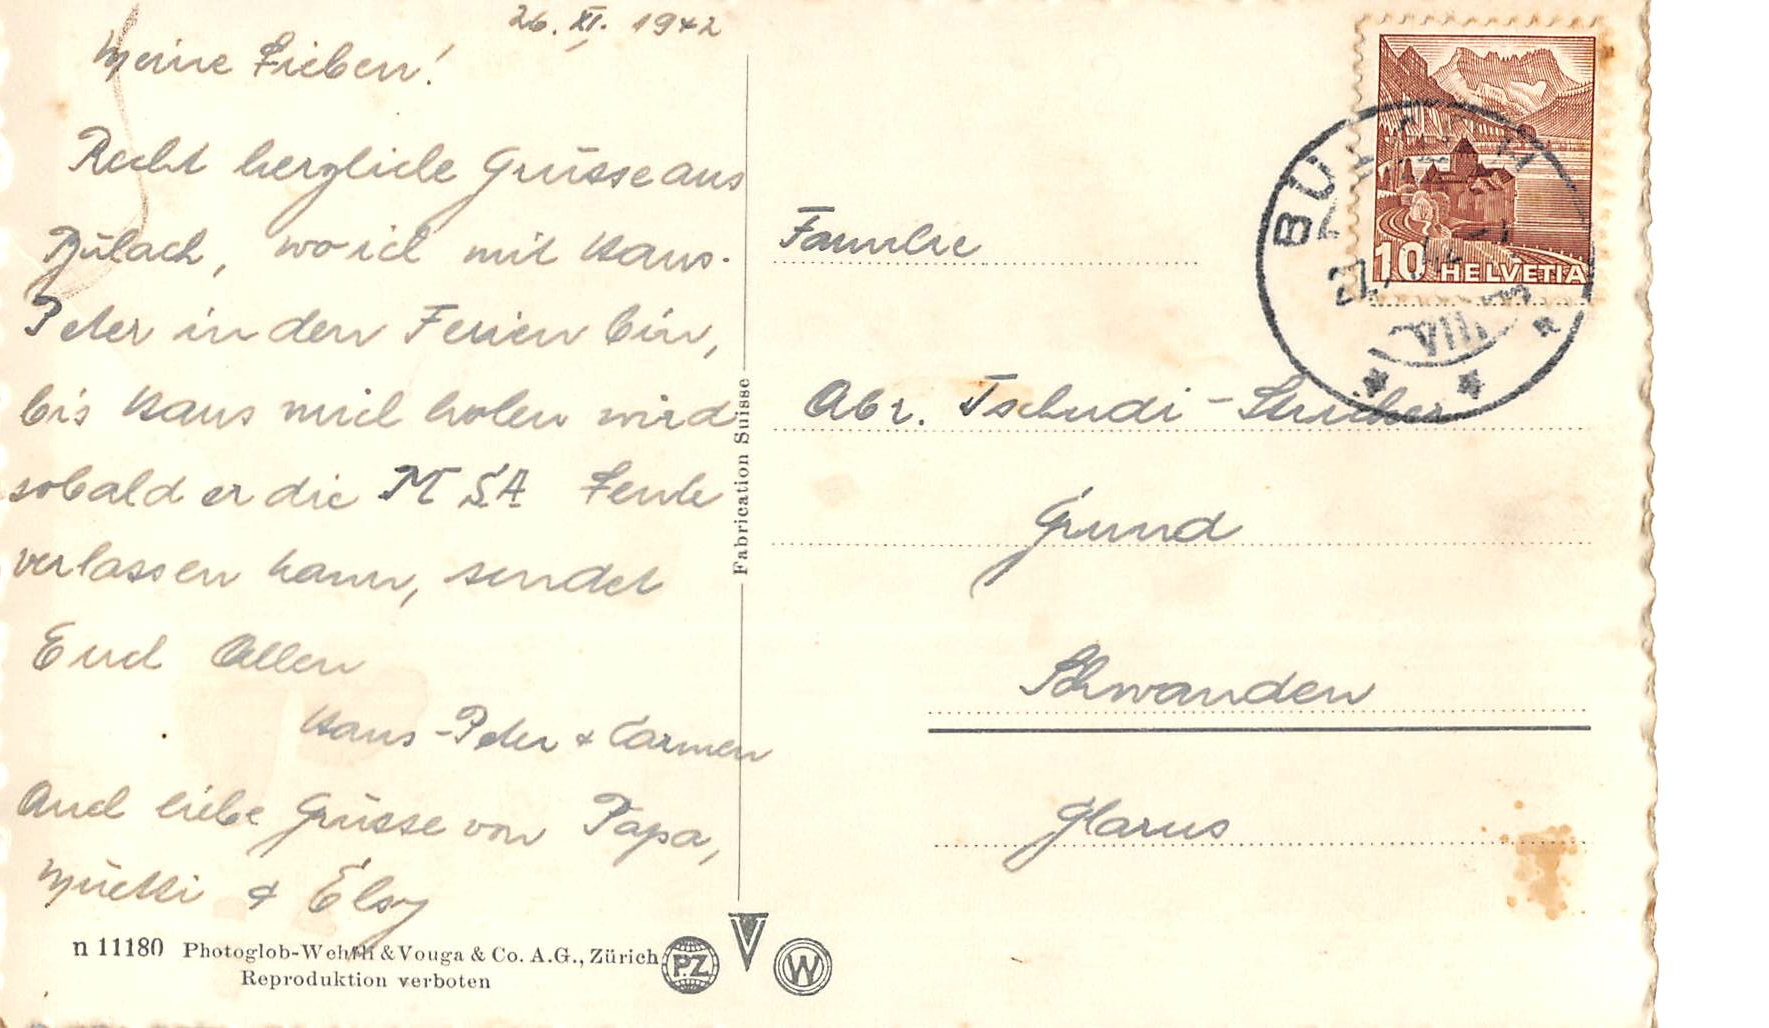 26. XI. 1942
Meine Lieben!
Recht herzliche Grüsse aus
Bülach, wo ich mit Hans-
Peter in den Ferien bin,
bis Hans mich holen wird
sobald er die M S A Leute
verlassen kann, sendet
Euch Allen
Hans-Peter & Carmen
Auch liebe Grüsse von Papa,
Müetti & Elsy
n 11180 Photoglob-Wehrli & Vouga & Co. A.G., Zürich
Reproduktion verboten
Fabrication Suisse
PZ
V
W
10 HELVETIA
BÜLACH
27.
VIII
Familie
Abr. Tschudi-Streicher
Grund
Schwanden
Glarus